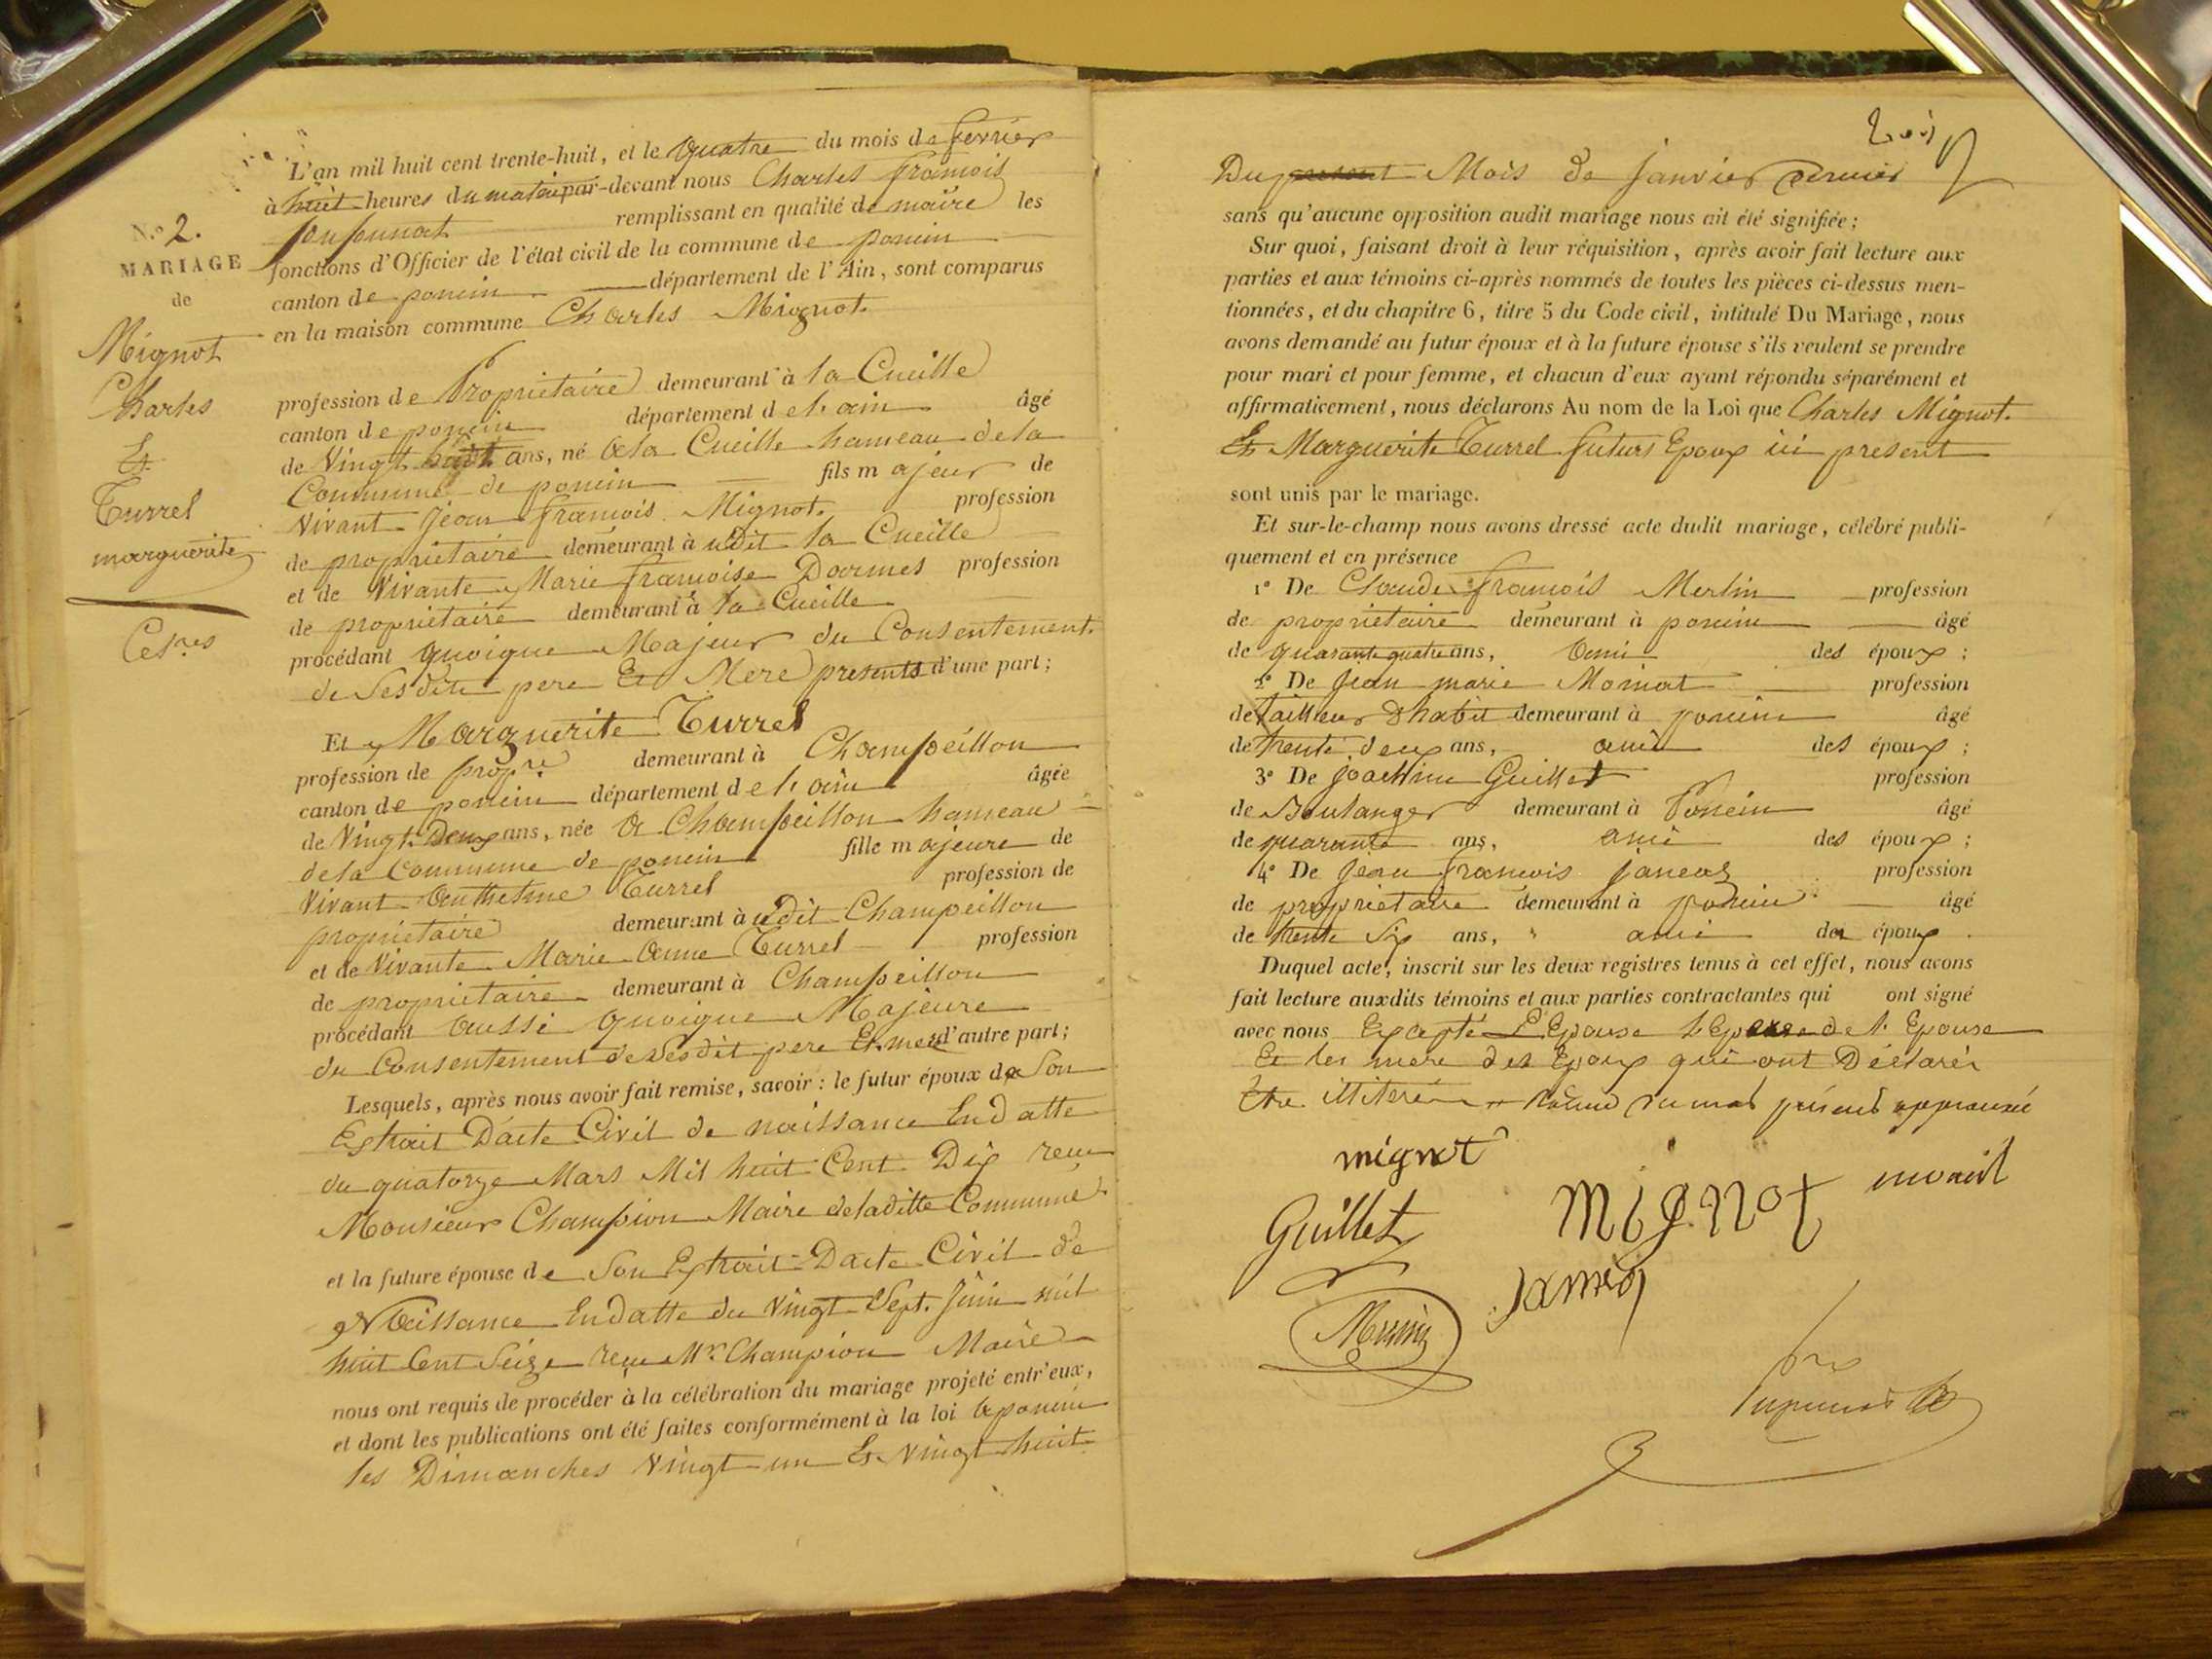 L'an mil huit cent trente-huit, et le quatre du mois de fevrier
à huit heures du matin par-devant nous Charles francois
remplissant en qualité de maire les
N.o 2.
fonctions d'Officier de l'état civil de la commune de poncin
MARIAGE
canton de poncin département de l'Ain, sont comparus
de
en la maison commune Charles Mignot
Mignot
Charles
Et
Turrel
marguerite
profession de Propriétaire demeurant à la Cueille
canton de poncin département de l'ain âgé
de Vingt huit ans, né a la Cueille hameau de la
Commune de poncin fils majeur de
Vivant Jean francois Mignot profession
de propriétaire demeurant à udit la Cueille
et de Vivante Marie francoise Darmes profession
de propriétaire demeurant à la Cueille
procédant quoique Majeur du Consentement
de Sesdits pere Et Mere presents d'une part;
Et Marguerite Turrel
profession de propre demeurant à Champeillon
canton de poncin département de l'ain âgée
de Vingt Deux ans, née a Champeillon hameau
de la Commune de poncin fille majeure de
Vivant Anthelme Turrel profession de
propriétaire demeurant à udit Champeillon
et de Vivante Marie Anne Turrel profession
de propriétaire demeurant à Champeillon
procédant Aussi quoique Majeure
du Consentement de Sesdit pere Et mere d'autre part;
Lesquels, après nous avoir fait remise, savoir: le futur époux de Son
Extrait Dacte Civil de naissance En datte
du quatorze Mars Mil huit Cent Dix recu
Monsieur Champion Maire de laditte Commune
et la future épouse de Son Extrait Dacte Civil de
Naissance En datte du Vingt Sept Juin mil
huit Cent Seize recu Mr Champion Maire
nous ont requis de procéder à la célébration du mariage projeté entr'eux,
et dont les publications ont été faites conformément à la loi a poncin
les Dimanches Vingt un Et Vingt huit
Du present Mois de Janvier dernier
sans qu'aucune opposition audit mariage nous ait été signifiée;
Sur quoi, faisant droit à leur réquisition, après avoir fait lecture aux
parties et aux témoins ci-après nommés de toutes les pièces ci-dessus men-
tionnées, et du chapitre 6, titre 5 du Code civil, intitulé Du Mariage, nous
avons demandé au futur époux et à la future épouse s'ils veulent se prendre
pour mari et pour femme, et chacun d'eux ayant répondu séparément et
affirmativement, nous déclarons Au nom de la Loi que Charles Mignot
Et Marguerite Turrel futurs Epoux ici present
sont unis par le mariage.
Et sur-le-champ nous avons dressé acte dudit mariage, célébré publi-
quement et en présence
1o De Claude francois Merlin profession
de propriétaire demeurant à poncin âgé
de quarante quatre ans, ami des époux;
2o De Jean marie Moinat profession
de tailleur Dhabit demeurant à poncin âgé
de trente deux ans, ami des époux;
3o De joachim Guillet profession
de Boulanger demeurant à Poncin âgé
de quarante ans, ami des époux;
4o De Jean francois Janeaz profession
de propriétaire demeurant à poncin âgé
de trente Six ans, ami des époux.
Duquel acte, inscrit sur les deux registres tenus à cet effet, nous avons
fait lecture auxdits témoins et aux parties contractantes qui ont signé
avec nous Excepté L'Epouse de l'Epouse
Et les mere des Epoux qui ont Déclarés
Etre illiterés
mignot
Guillet
mignot